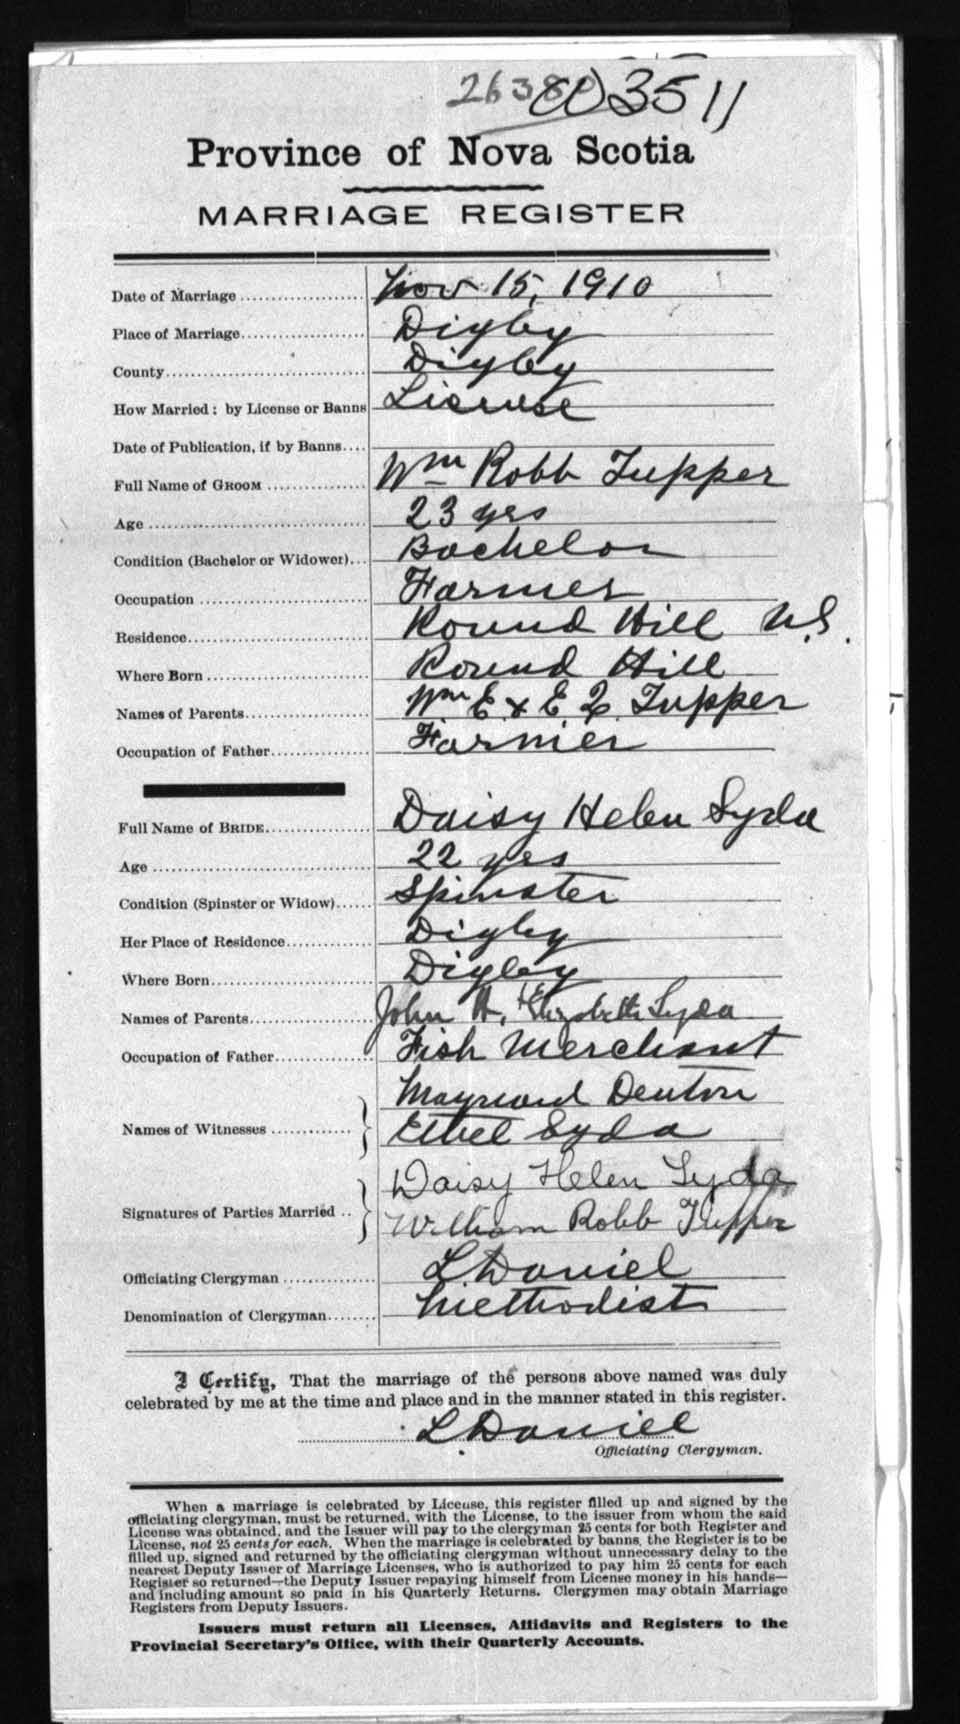 3511
Province of Nova Scotia
MARRIAGE REGISTER
Date of Marriage Nov 15, 1910
Place of Marriage Digby
County Digby
How Married : by License or Banns License
Date of Publication, if by Banns
Full Name of GROOM Wm Robb Tupper
Age 23 yrs
Condition (Bachelor or Widower) Bachelor
Occupation Farmer
Residence Round Hill N.S.
Where Born Round Hill
Names of Parents Wm E. & E. Tupper
Occupation of Father Farmer
Full Name of BRIDE Daisy Helen Syda
Age 22 yrs
Condition (Spinster or Widow) Spinster
Her Place of Residence Digby
Where Born Digby
Names of Parents John H, Elizabeth Syda
Occupation of Father Fish Merchant
Maynard Denton
Names of Witnesses Ethel Syda
Daisy Helen Syda
Signatures of Parties Married William Robb Tupper
Officiating Clergyman L Daniel
Denomination of Clergyman Methodist
I Certify, That the marriage of the persons above named was duly
celebrated by me at the time and place and in the manner stated in this register.
L Daniel
Officiating Clergyman.
When a marriage is celebrated by License, this register filled up and signed by the
officiating clergyman, must be returned, with the License, to the issuer from whom the said
License was obtained, and the Issuer will pay to the clergyman 25 cents for both Register and
License, not 25 cents for each. When the marriage is celebrated by banns, the Register is to be
filled up, signed and returned by the officiating clergyman without unnecessary delay to the
nearest Deputy Issuer of Marriage Licenses, who is authorized to pay him 25 cents for each
Register so returned—the Deputy Issuer repaying himself from License money in his hands—
and including amount so paid in his Quarterly Returns. Clergymen may obtain Marriage
Registers from Deputy Issuers.
Issuers must return all Licenses, Affidavits and Registers to the
Provincial Secretary's Office, with their Quarterly Accounts.